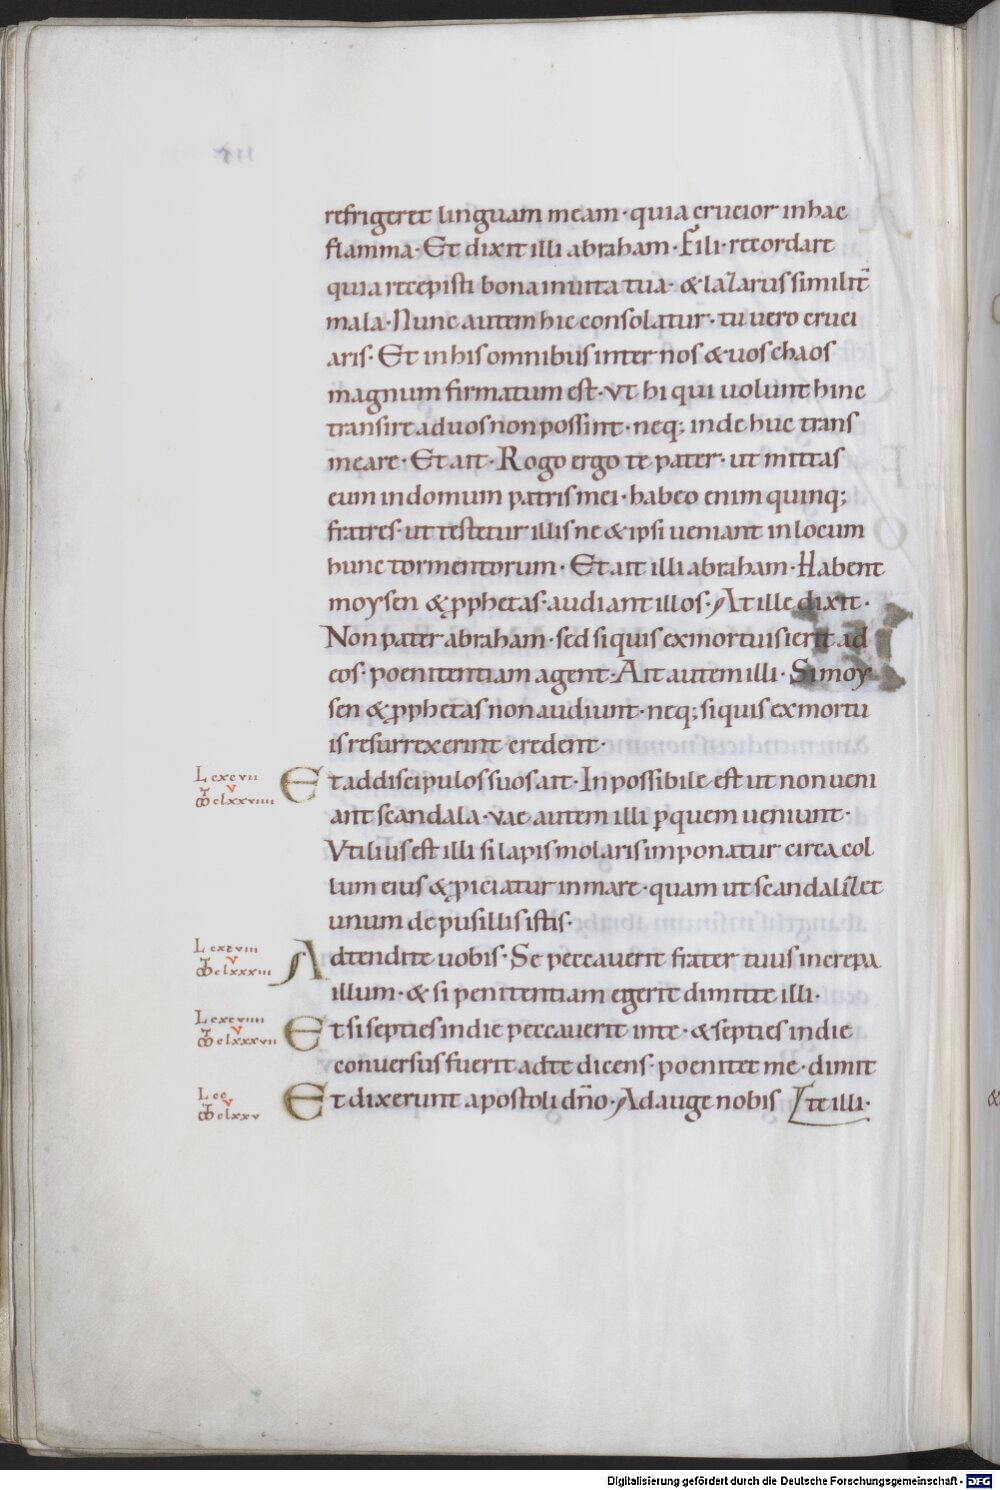 refrigeret linguam meam · quia crucior in hac
flamma · Et dixit illi abraham · Fili · recordare
quia recepisti bona in uita tua · & lazarus similit̄
mala · Nunc autem hic consolatur · tu uero cruci
aris · Et in his omnibus inter nos & uos chaos
magnum firmatum est · vt hi qui uolunt hinc
transire ad uos non possint · neq; inde huc trans
meare · Et ait · Rogo ergo te pater · ut mittas
eum in domum patris mei · habeo enim quinq;
fratres · ut testetur illis ne & ipsi ueniant in locum
hunc tormentorum · Et ait illi abraham · Habent
moysen & ꝓphetas · audiant illos · At ille dixit ·
Non pater abraham · sed si quis ex mortuis ierit ad
eos · poenitentiam agent · Ait autem illi · Si moy
sen & ꝓphetas non audiunt · neq; si quis ex mortu
is resurrexerint credent ·
L cxcvii
v
clxxviiii
Et ad discipulos suos ait · Inpossibile est ut non ueni
ant scandala · vae autem illi ꝑ quem ueniunt ·
Vtilius est illi si lapis molaris imponatur circa col
lum eius & ꝓiciatur in mare · quam ut scandalizet
unum de pusillis istis ·
L cxcviii
v
clxxxiii
Adtendite uobis · Se peccauerit frater tuus increpa
illum · & si penitentiam egerit dimitte illi ·
L cxcviiii
v
clxxxvii
Et si septies in die peccauerit in te · & septies in die
conuersus fuerit ad te dicens · poenitet me · dimit
te illi ·
L cc
v
clxxv
Et dixerunt apostoli dn̄o · Adauge nobis
Digitalisierung gefördert durch die Deutsche Forschungsgemeinschaft - DFG